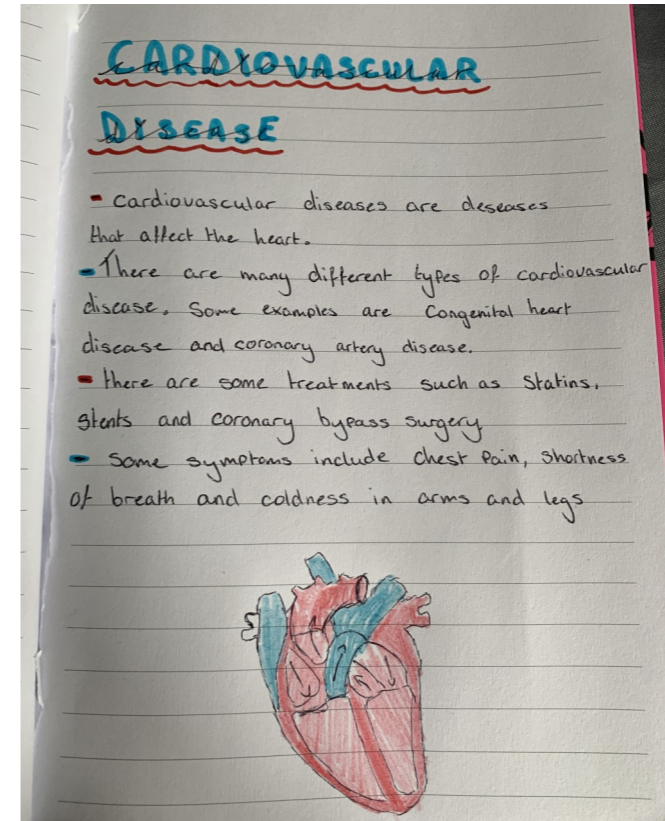 CARDIOVASCULAR
DISEASE
- Cardiovascular diseases are deseases
that affect the heart.
- There are many different types of cardiovascular
disease. Some examples are Congenital heart
disease and coronary artery disease.
- there are some treatments such as Statins,
stents and coronary bypass surgery
- Some symptoms include chest Pain, Shortness
of breath and coldness in arms and legs